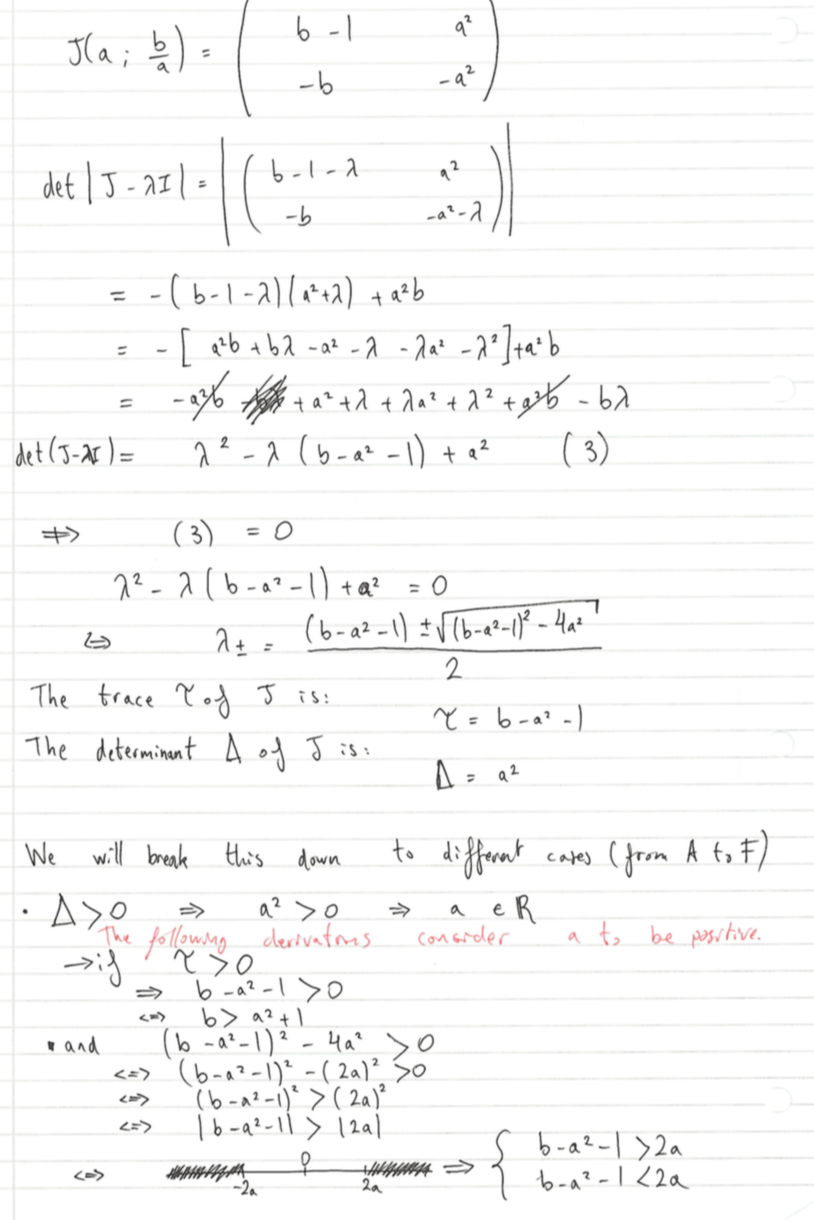 J(a ; b/a) = ( b - 1 a² -b -a² )
det | J - λI | = | ( b - 1 - λ a² -b -a² - λ ) |
= - ( b - 1 - λ)( a² + λ) + a²b
= - [ a²b + bλ - a² - λ - λa² - λ² ] + a²b
= - a²b + a² + λ + λa² + λ² + a²b - bλ
det(J-λI) = λ² - λ ( b - a² - 1) + a² (3)
⇒ (3) = 0
λ² - λ ( b - a² - 1) + a² = 0
⇔ λ± = ( b - a² - 1) ± √(b-a²-1)² - 4a² / 2
The trace τ of J is:
τ = b - a² - 1
The determinant Δ of J is:
Δ = a²
We will break this down to different cases (from A to F)
· Δ > 0 ⇒ a² > 0 ⇒ a ∈ R
The following derivations consider a to be positive.
→ if τ > 0
⇒ b - a² - 1 > 0
⇔ b > a² + 1
▪ and (b - a² - 1)² - 4a² > 0
⇔ (b - a² - 1)² - (2a)² > 0
⇔ (b - a² - 1)² > (2a)²
⇔ |b - a² - 1| > |2a|
⇔ -2a 0 2a ⇒ { b - a² - 1 > 2a
b - a² - 1 < 2a